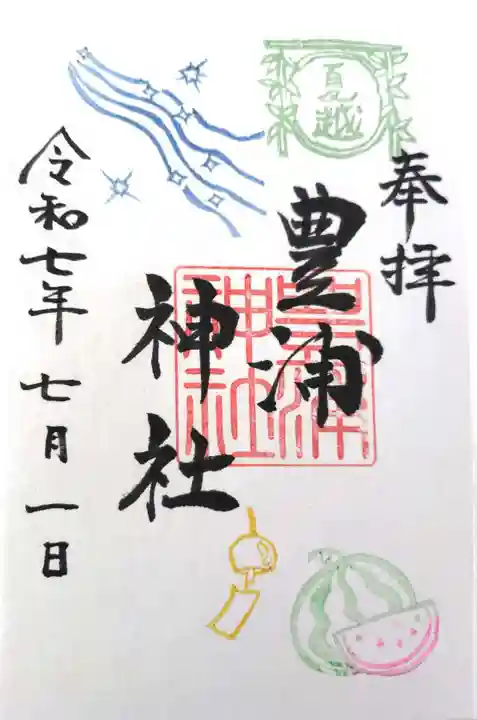 奉拝
夏越
豊浦
神社
豊浦
神社
令和七年七月一日